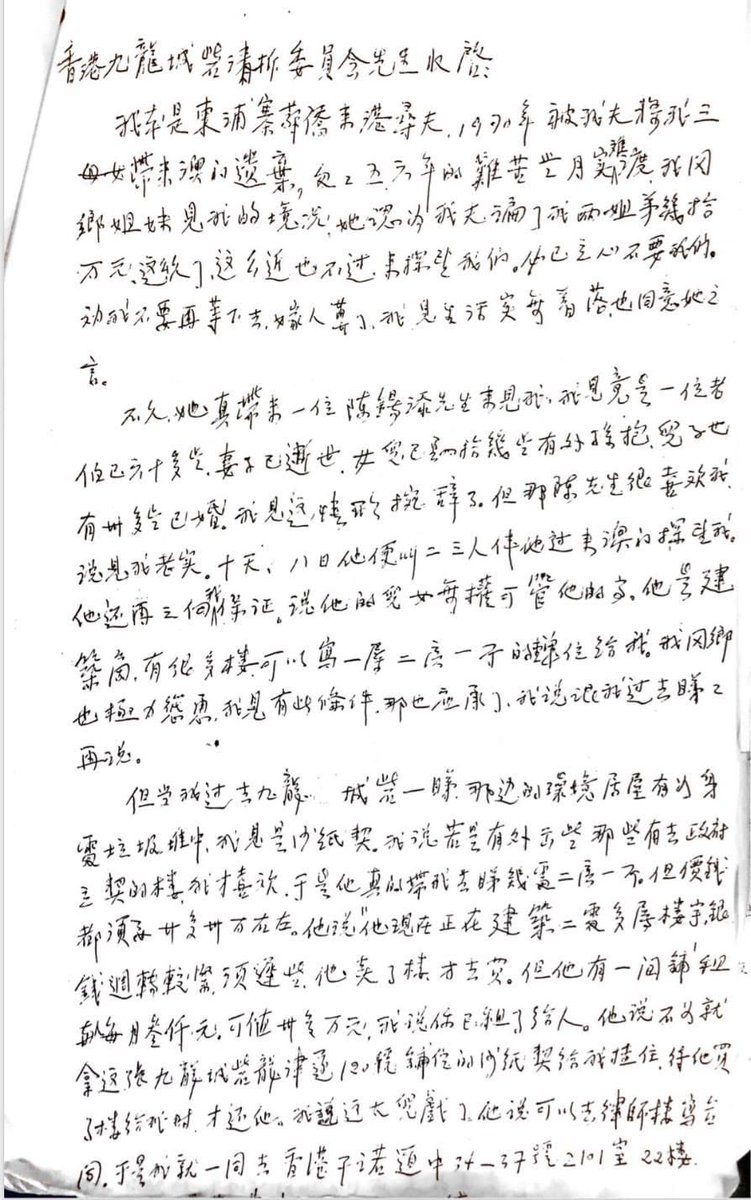 香港九龍城砦清拆委員会先生收啓:
我本是東浦寨華僑来港尋夫,1970年被我夫將我三
母女帶来澳门遺棄,多年的難苦岁月實難度,我同
鄉姐妹見我的境况,她認为我夫骗了我两姐弟幾拾
万元,這么近也不过来探望我们。他已立心不要我们。
劝我不要再等下去,嫁人算了,我見生活实無着落,也同意她之
言。
不久,她真帶来一位陳錫添先生来見我,我見竟是一位老
伯已六十多岁,妻子已逝世,女兒已拾幾岁有外孫抱,兒子也
有卅多岁已婚。我見這情形婉辞了。但那陳先生很喜欢我,
说見我老实。十天、八日他便叫二三人伴他过来澳门探望我。
他还再三保証。说他的兒女無權可管他的事。他是建
築商,有很多楼,可以寫一層二房一厅的單位给我。我同鄉
也極力慫恿,我見有此條件,那也应承了,我说讓我过去睇之
再说。
但当我过去九龍城砦一睇,那边的環境居屋有如身
置垃圾堆中,我見是沙紙契。我说若是有外面些那些有去政府
立契的楼,我才喜欢,于是他真的帶我去睇幾處二房一厅。但價錢
都須要廿多卅万左右。他说"他現在正在建築二處多層楼宇,銀
錢週轉較緊,須遲些,他卖了楼才去买。但他有一间鋪租
每月叁仟元,可值卅多万元,我说你已租了给人。他说不如就
拿这張九龍城砦龍津道120號鋪位的沙紙契给我揸住,待他買
了楼给我时,才还他。我說这太兒戲了。他说可以去律师楼寫合
同。于是我就一同去香港干诺道中34-37號2101室22楼